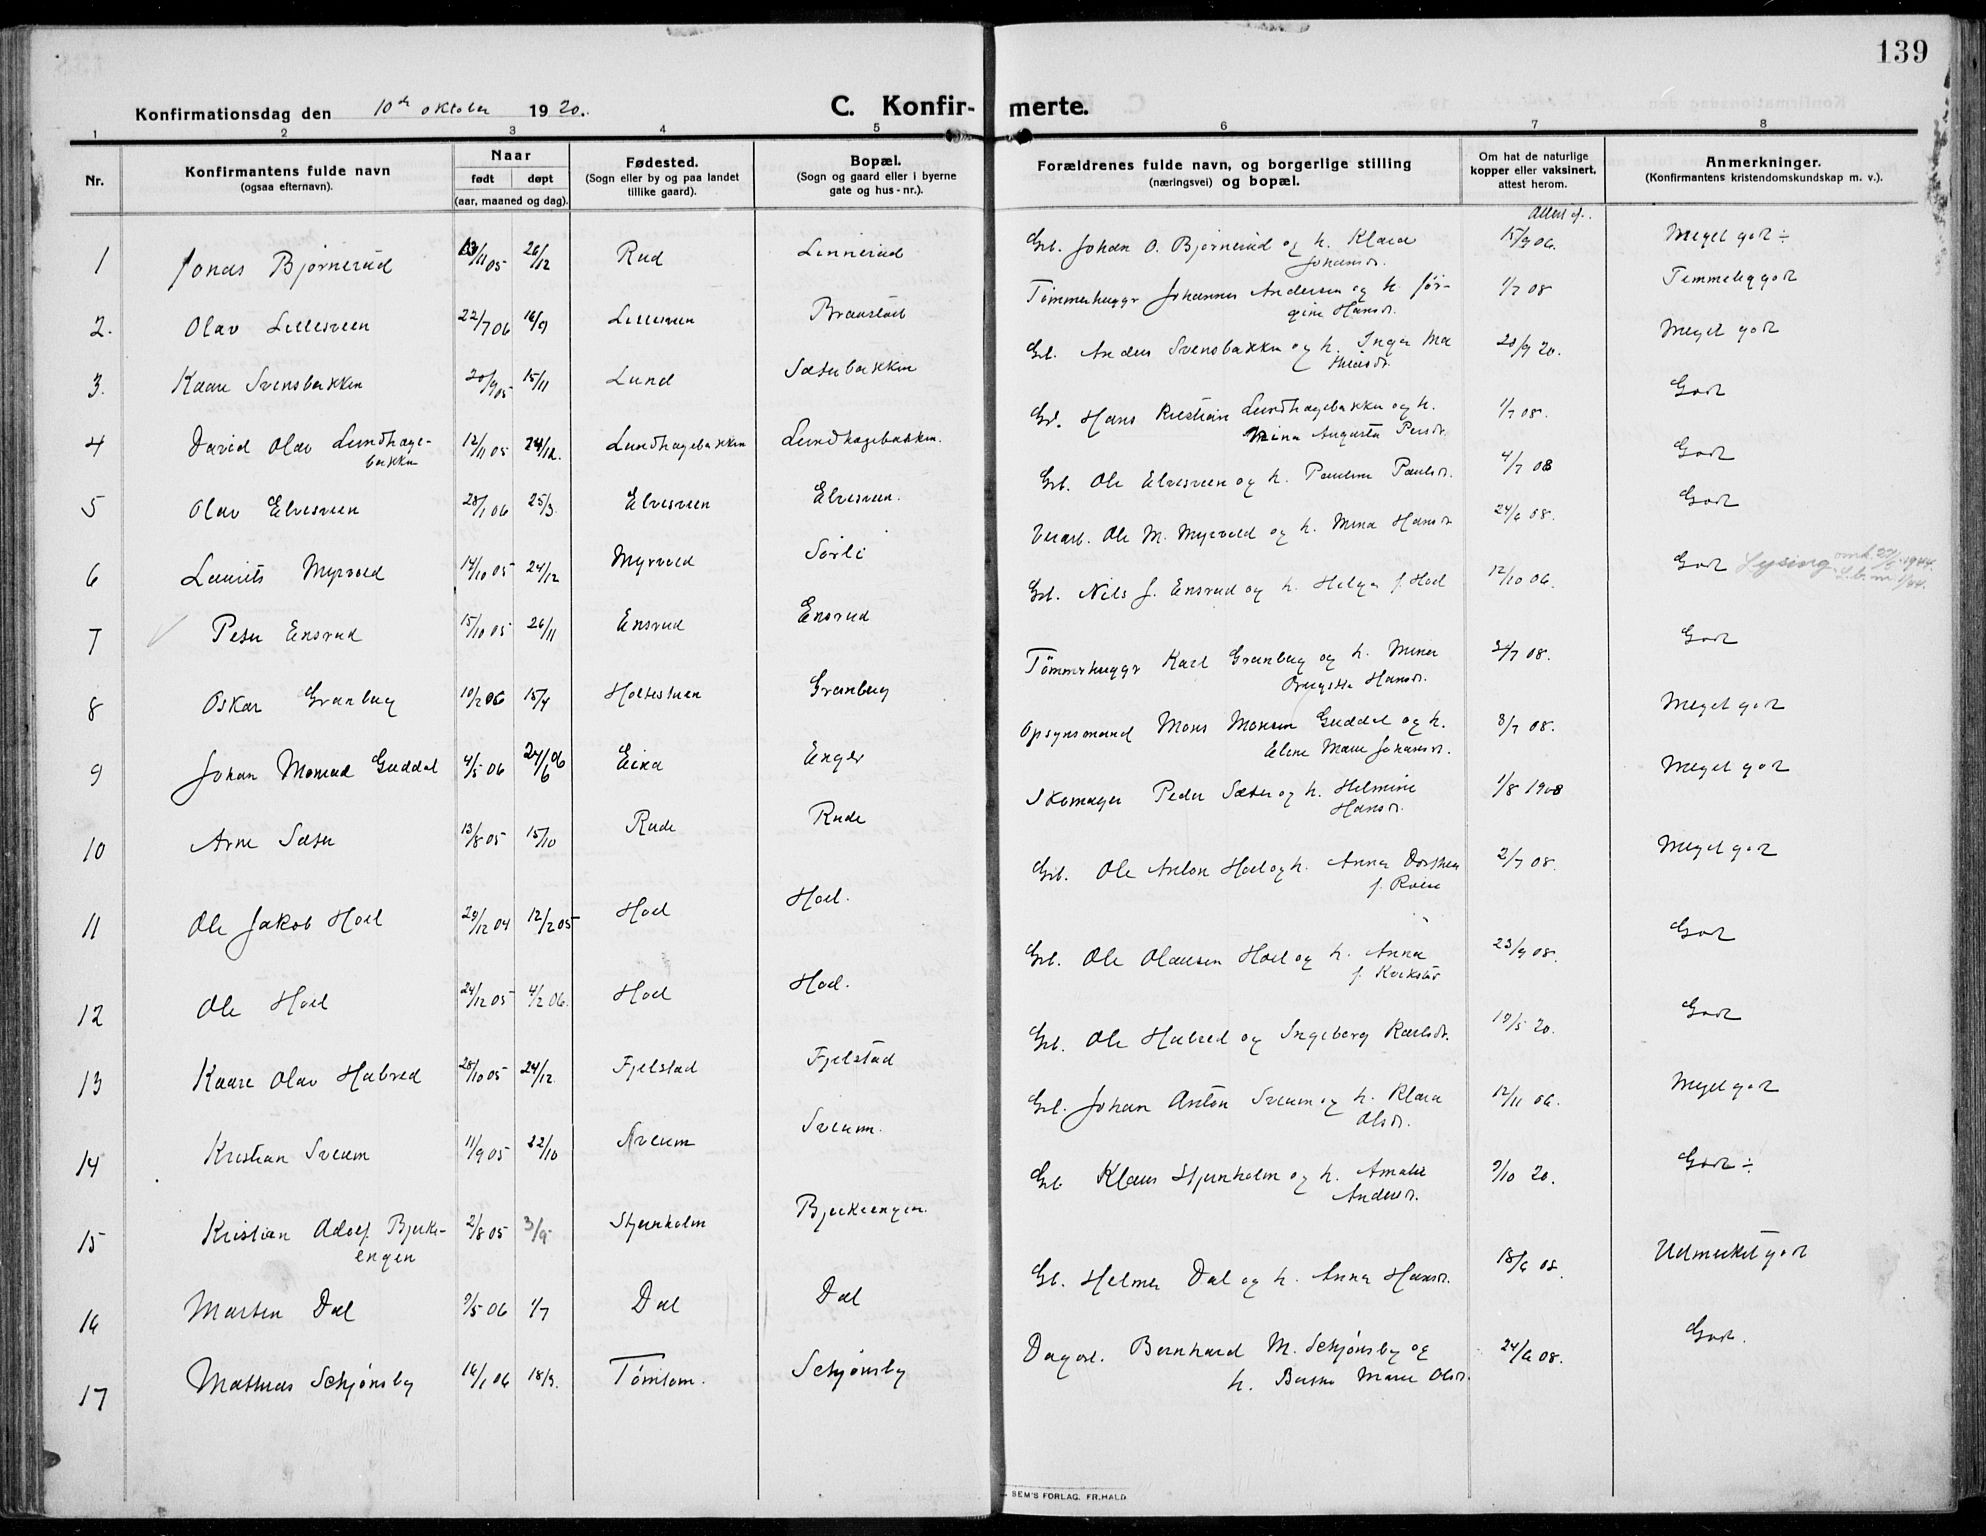 139
Konfirmationsdag den 10de oktober 1920.
C. Konfir- merte.
1 2 3 4 5 6 7 8
Nr.
Konfirmantens fulde navn
(ogsaa efternavn).
Naar
født døpt
(aar, maaned og dag).
Fødested.
(Sogn eller by og paa landet
tillike gaard).
Bopæl.
(Sogn og gaard eller i byerne
gate og hus-nr.).
Forældrenes fulde navn, og borgerlige stilling
(næringsvei) og bopæl.
Om hat de naturlige
kopper eller vaksinert,
attest herom.
Anmerkninger.
(Konfirmantens kristendomskundskap m. v.).
Attest af.
1 Jonas Bjørnerud 13/11 05 26/12 Rud Linnerud Grb. Johan O. Bjørnerud og h. Klara 15/9 06. Meget godt ÷
Johansdr.
2. Olav Lillesveen 22/7 06 16/9 Lillesveen Braastad Tømmerhugger Johannes Andersen og h. Jør- 1/7 08 Temmelig godt
gine Hansdr.
3. Kaare Svensbakken 20/9 05 15/11 Lund Sæterbakken Grb. Anders Svensbakken og h. Inga Ma 28/9 20. Meget godt
thiasdr.
4 David Olav Lundhage- 12/11 05 24/12. Lundhagebakken Lundhagebakken. Hans Kristian Lundhagebakken og h. 1/7 08. Godt
bakken Mina Augusta Persdr.
5 Olav Elvesveen 28/1 06 25/3. Elvesveen Elvesveen. Grb. Ole Elvesveen og h. Pauline Paulsdr. 4/7 08 Godt
6 Laurits Myrvold 14/10 05 24/12 Myrvold Sørli Ole M. Myrvold og h. Mina Hansdr 24/6 08. Godt
7 Peter Ensrud 15/10 05 26/11 Ensrud Ensrud Grb. Nils J. Ensrud og h. Helga f. Hoel 12/10 06. Godt Lysing
8 Oskar Granberg 10/2 06 15/4 Holtestuen Granberg Tømmerhugger Karl Granberg og h. Mina 3/7 08. Godt
Hansdr.
9 Johan Monrad Guddal 4/5 06 24/6 06 Eina Enger Opsynsmand Mons Monsen Guddal og h. 8/7 08. Meget godt
Eline Marie Johansdr.
10 Arne Sæter 13/8 05 15/10 Rude Rude Skomager Peder Sæter og h. Helmine 1/8 1908 Meget godt
Hansdr.
11 Ole Jakob Hoel 29/12 04 12/2 05 Hoel Hoel. Grb. Ole Anton Hoel og h. Anna Dorthea 2/7 08. Meget godt
12 Ole Hoel 24/12 05 4/2 06. Hoel Hoel. Grb. Ole Olausen Hoel og h. Anna 23/9 08. Godt
13 Kaare Olav Halsred 28/10 05 24/12 Fjelstad Fjelstad Grb. Ole Halsred og Ingeborg Karlsdr. 19/5 20. Godt
14 Kristian Sveum 11/9 05 22/10 Sveum Sveum. Grb. Johan Anton Sveum og h. Klara 12/11 06. Meget godt
Olsdr.
15 Kristian Adolf Bjerke- 2/8 05 3/9 Stjernholm Bjerkeengen. Grb Klaus Stjernholm og h. Amalie 9/10 20. Godt ÷
engen Andersdr.
16 Morten Dal 9/5 06 1/7 Dal Dal Grb. Helmer Dal og h. Anna Hansdr. 18/6 08. Udmerket godt
17 Mathias Schjønsby 16/1 06 18/3. Tømten. Schjønsby Dagarb. Bernhard M. Schjønsby og 24/6 08. Godt.
h. Berthe Marie Olsdr.
SEM'S FORLAG. FR.HALD